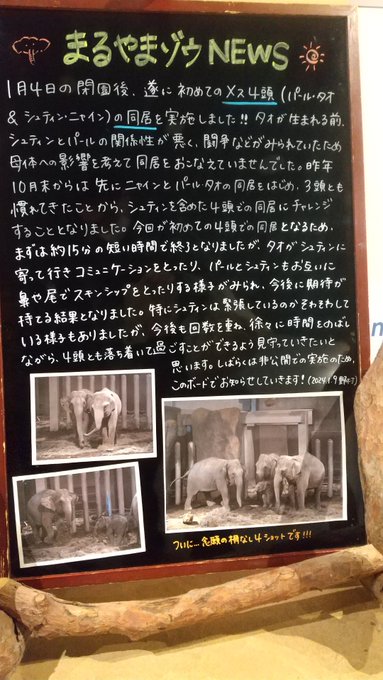 まるやまゾウNEWS
1月4日の閉園後、遂に初めてのメス4頭（パール・タオ
&シュティン・ニャイン）の同居を実施しました!!タオが生まれる前、
シュティンとパールの関係性が悪く、闘争などがみられていたため
母体への影響を考えて同居をおこなえていませんでした。昨年
10月末からは先にニャインとパール・タオの同居をはじめ、3頭とも
慣れてきたことから、シュティンを含めた4頭での同居にチャレンジ
することとなりました。今回が初めての4頭での同居となるため、
まずは約15分の短い時間で終了となりましたが、タオがシュティンに
寄って行きコミュニケーションをとったり、パールとシュティンもお互いに
鼻や尾でスキンシップをとったりする様子がみられ、今後に期待が
持てる結果となりました。特にシュティンは緊張しているのかそわそわして
いる様子もありましたが、今後も回数を重ね、徐々に時間をのばし
ながら、4頭とも落ち着いて過ごすことができるよう見守っていきたいと
思います。しばらくは非公開での実施のため、
このボードでお知らせしていきます!(2024.1.9
ついに…念願の柵なし4ショットです!!!